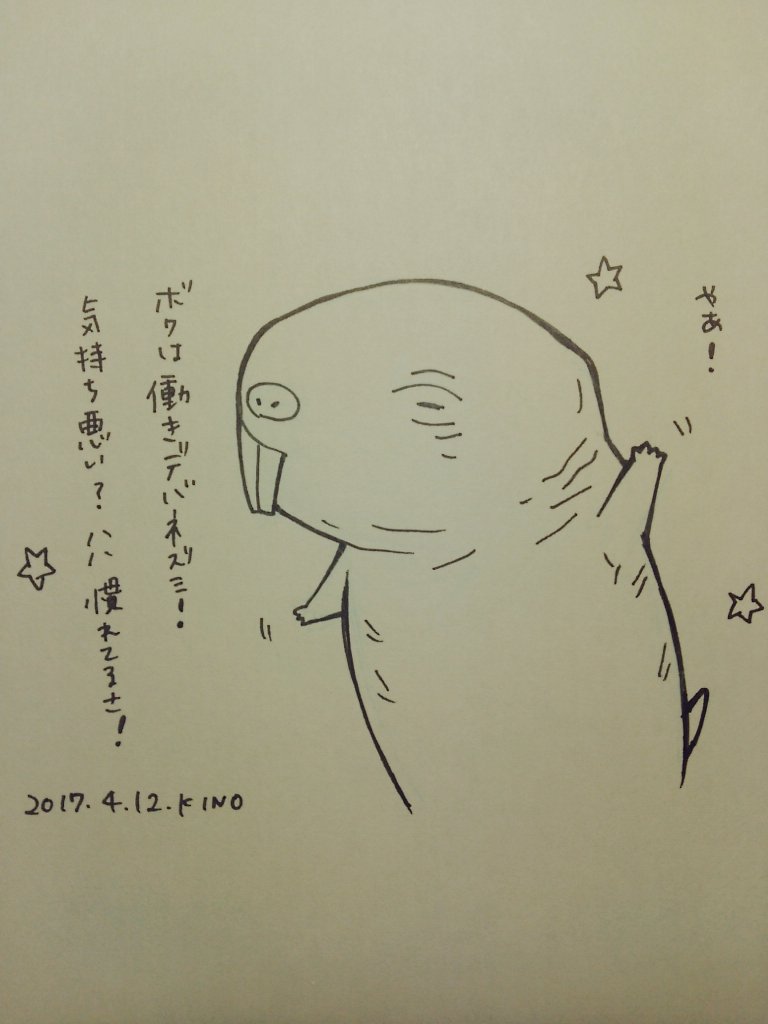 やあ！
ボクは働きデバネズミ！
気持ち悪い？ハハ慣れてるさ！
2017.4.12.KINO